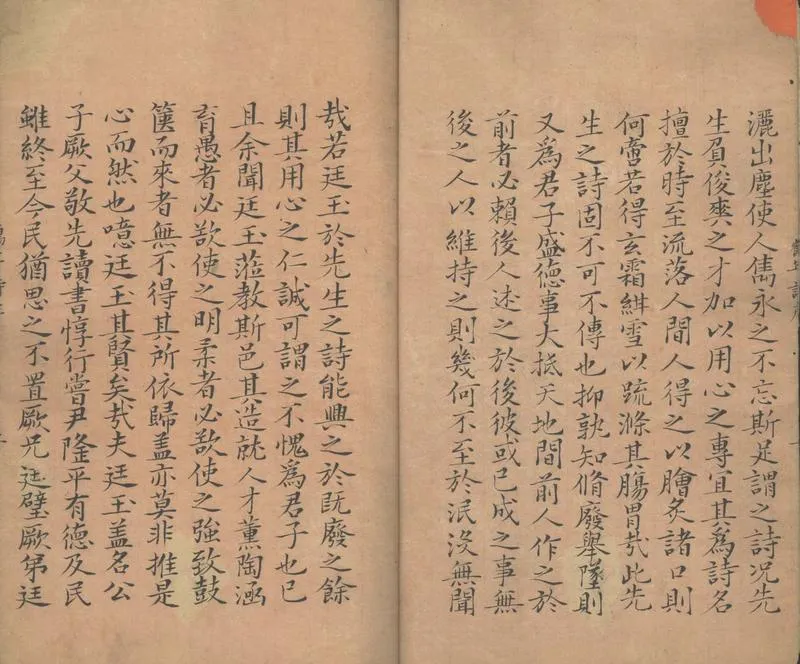 灑出塵使人雋永之不忘斯足謂之詩况先
生負俊爽之才加以用心之專宜其爲詩名
擅於時至流落人間人得之以膾炙諸口則
何啻若得玄霜絳雪以疏滌其腸胃哉此先
生之詩固不可不傳也抑孰知脩廢舉墜則
又爲君子盛德事大抵天地間前人作之於
前者必賴後人述之於後彼或已成之事無
後之人以維持之則幾何不至於泯沒無聞
哉若廷玉於先生之詩能興之於既廢之餘
則其用心之仁誠可謂之不愧爲君子也已
且余聞廷玉蒞教斯邑其造就人才薰陶涵
育愚者必欲使之明柔者必欲使之強致鼓
篋而來者無不得其所依歸盖亦莫非推是
心而然也噫廷玉其賢矣哉夫廷玉盖名公
子厥父敬先讀書惇行嘗尹隆平有德及民
雖終至今民猶思之不置厥兄廷璧厥弟廷